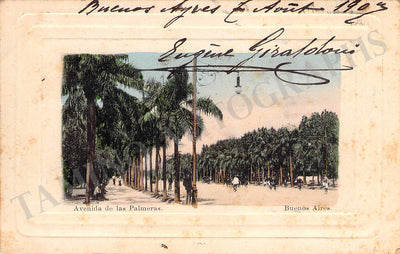 Buenos Ayres 7 Août 1907
Eugène Giraldoni
TAMINO AUTOGRAPHS
Avenida de las Palmeras.
Buenos Aires.